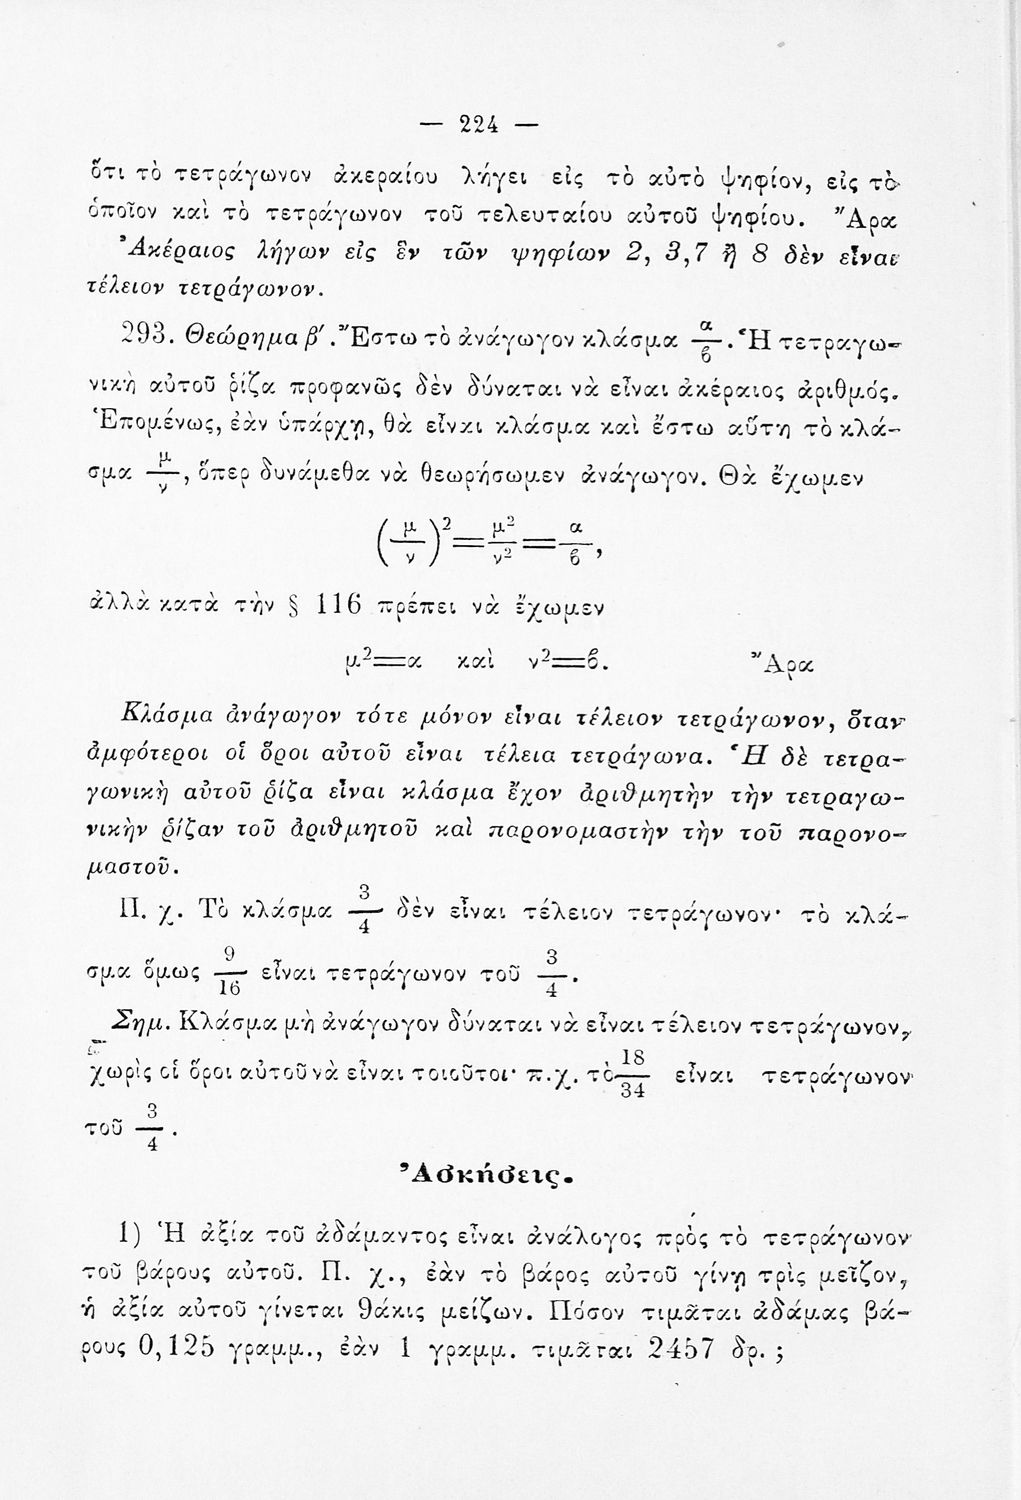 — 224 —
ὅτι τὸ τετράγωνον ἀκεραίου λήγει εἰς τὸ αὐτὸ ψηφίον, εἰς τὸ
ὁποῖον καὶ τὸ τετράγωνον τοῦ τελευταίου αὐτοῦ ψηφίου. Ἄρα
Ἀκέραιος λήγων εἰς ἓν τῶν ψηφίων 2, 3,7 ἢ 8 δὲν εἶναι
τέλειον τετράγωνον.
293. Θεώρημα β΄. Ἔστω τὸ ἀνάγωγον κλάσμα α/β. Ἡ τετραγω-
νικὴ αὐτοῦ ῥίζα προφανῶς δὲν δύναται νὰ εἶναι ἀκέραιος ἀριθμός.
Ἑπομένως, ἐὰν ὑπάρχῃ, θὰ εἶναι κλάσμα καὶ ἔστω αὕτη τὸ κλά-
σμα μ/ν, ὅπερ δυνάμεθα νὰ θεωρήσωμεν ἀνάγωγον. Θὰ ἔχωμεν
(μ/ν)²=μ²/ν²=α/β,
ἀλλὰ κατὰ τὴν § 116 πρέπει νὰ ἔχωμεν
μ²=α καὶ ν²=β. Ἄρα
Κλάσμα ἀνάγωγον τότε μόνον εἶναι τέλειον τετράγωνον, ὅταν
ἀμφότεροι οἱ ὅροι αὐτοῦ εἶναι τέλεια τετράγωνα. Ἡ δὲ τετρα-
γωνικὴ αὐτοῦ ῥίζα εἶναι κλάσμα ἔχον ἀριθμητὴν τὴν τετραγω-
νικὴν ῥίζαν τοῦ ἀριθμητοῦ καὶ παρονομαστὴν τὴν τοῦ παρονο-
μαστοῦ.
Π. χ. Τὸ κλάσμα 3/4 δὲν εἶναι τέλειον τετράγωνον· τὸ κλά-
σμα ὅμως 9/16 εἶναι τετράγωνον τοῦ 3/4.
Σημ. Κλάσμα μὴ ἀνάγωγον δύναται νὰ εἶναι τέλειον τετράγωνον,
χωρὶς οἱ ὅροι αὐτοῦ νὰ εἶναι τοιοῦτοι· π.χ. τὸ 18/34 εἶναι τετράγωνον
τοῦ 3/4.
Ἀσκήσεις.
1) Ἡ ἀξία τοῦ ἀδάμαντος εἶναι ἀνάλογος πρὸς τὸ τετράγωνον
τοῦ βάρους αὐτοῦ. Π. χ., ἐὰν τὸ βάρος αὐτοῦ γίνῃ τρὶς μεῖζον,
ἡ ἀξία αὐτοῦ γίνεται 9άκις μείζων. Πόσον τιμᾶται ἀδάμας βά-
ρους 0,125 γραμμ., ἐὰν 1 γραμμ. τιμᾶται 2457 δρ. ;